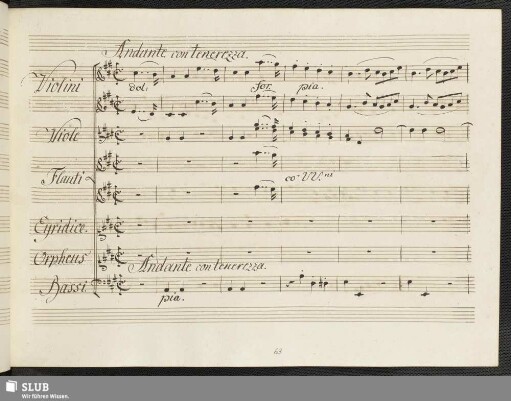 Andante con tenerezza.
Violini
dol. for. pia.
Viole
Flauti
co VV.ni
Eyridice.
Orpheus
Andante con tenerezza.
Bassi
pia.
63
SLUB
Wir führen Wissen.